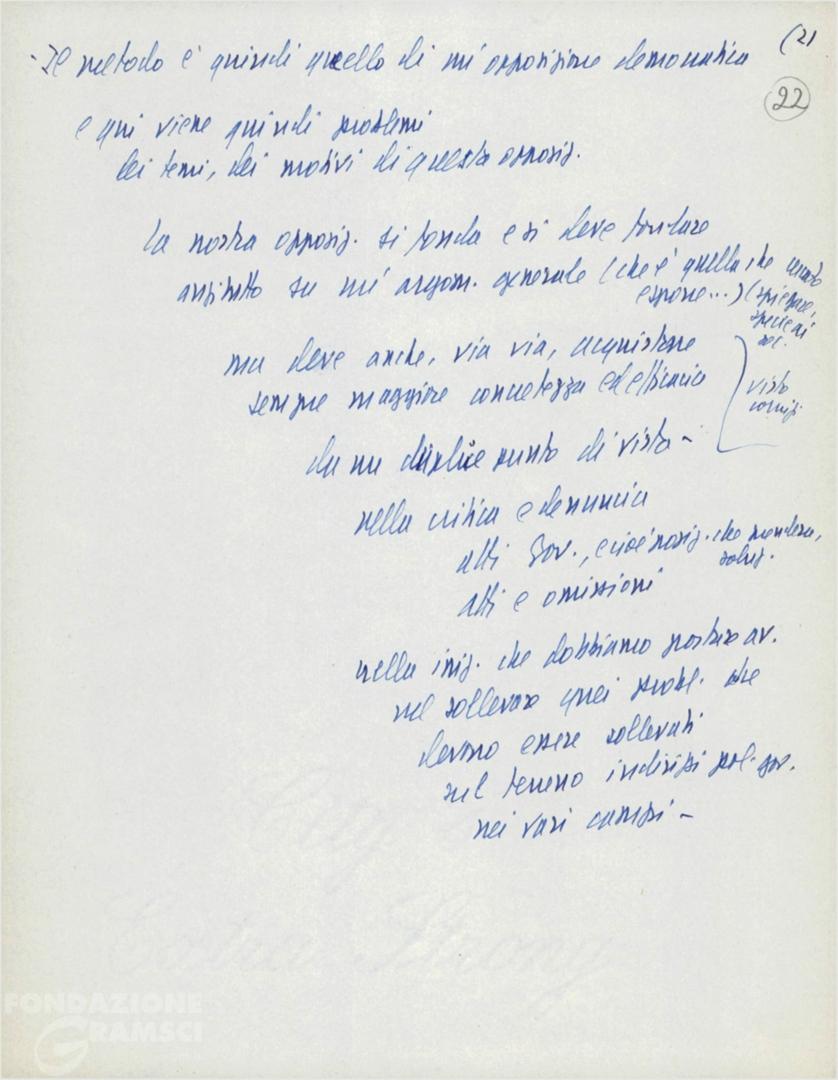 (21
22
- Il metodo è quindi quello di un'opposizione democratica
e qui viene quindi problemi
dei temi, dei motivi di questa opposiz.
La nostra opposiz. si fonda e si deve fondare
anzitutto su un'argom. generale (che è quella che
espone...) (spiegare,
ma deve anche, via via, acquistare
sempre maggiore concretezza ed efficacia
visto
comizi
da un duplice punto di vista -
nella critica e denuncia
atti Gov., e cioè posiz. che prendera,
atti e omissioni
nella iniz. che dobbiamo portare av.
nel sollevare quei probl. che
devono essere sollevati
sul terreno indirizzi pol. gov.
nei vari campi -
Extra Strong
FONDAZIONE
GRAMSCI